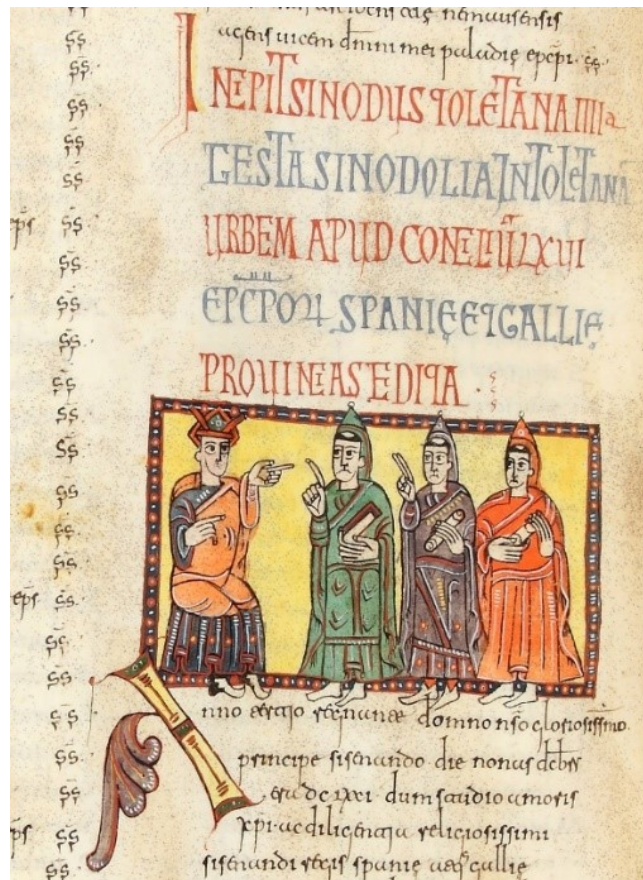 nemausensis
agens uicem dm̄ni mei paludię epc̄pi · s̄s̄
INCIPIT SINODUS TOLETANA IIIIª
GESTA SINODOLIA IN TOLETANA
URBEM APUD CONCILIŪ LXUI
EPC̄POꝜ SPANIĘ ET GALLIĘ
PROUINCIAS EDITA
Anno tertio regnante domno nso gloriosissimo ·
principe sisenando die nonas dcb̄r
era dc lxxi dum studio amoris
xp̄i ac diligentia religiosissimi
sisenandi regis spanię atq gallię